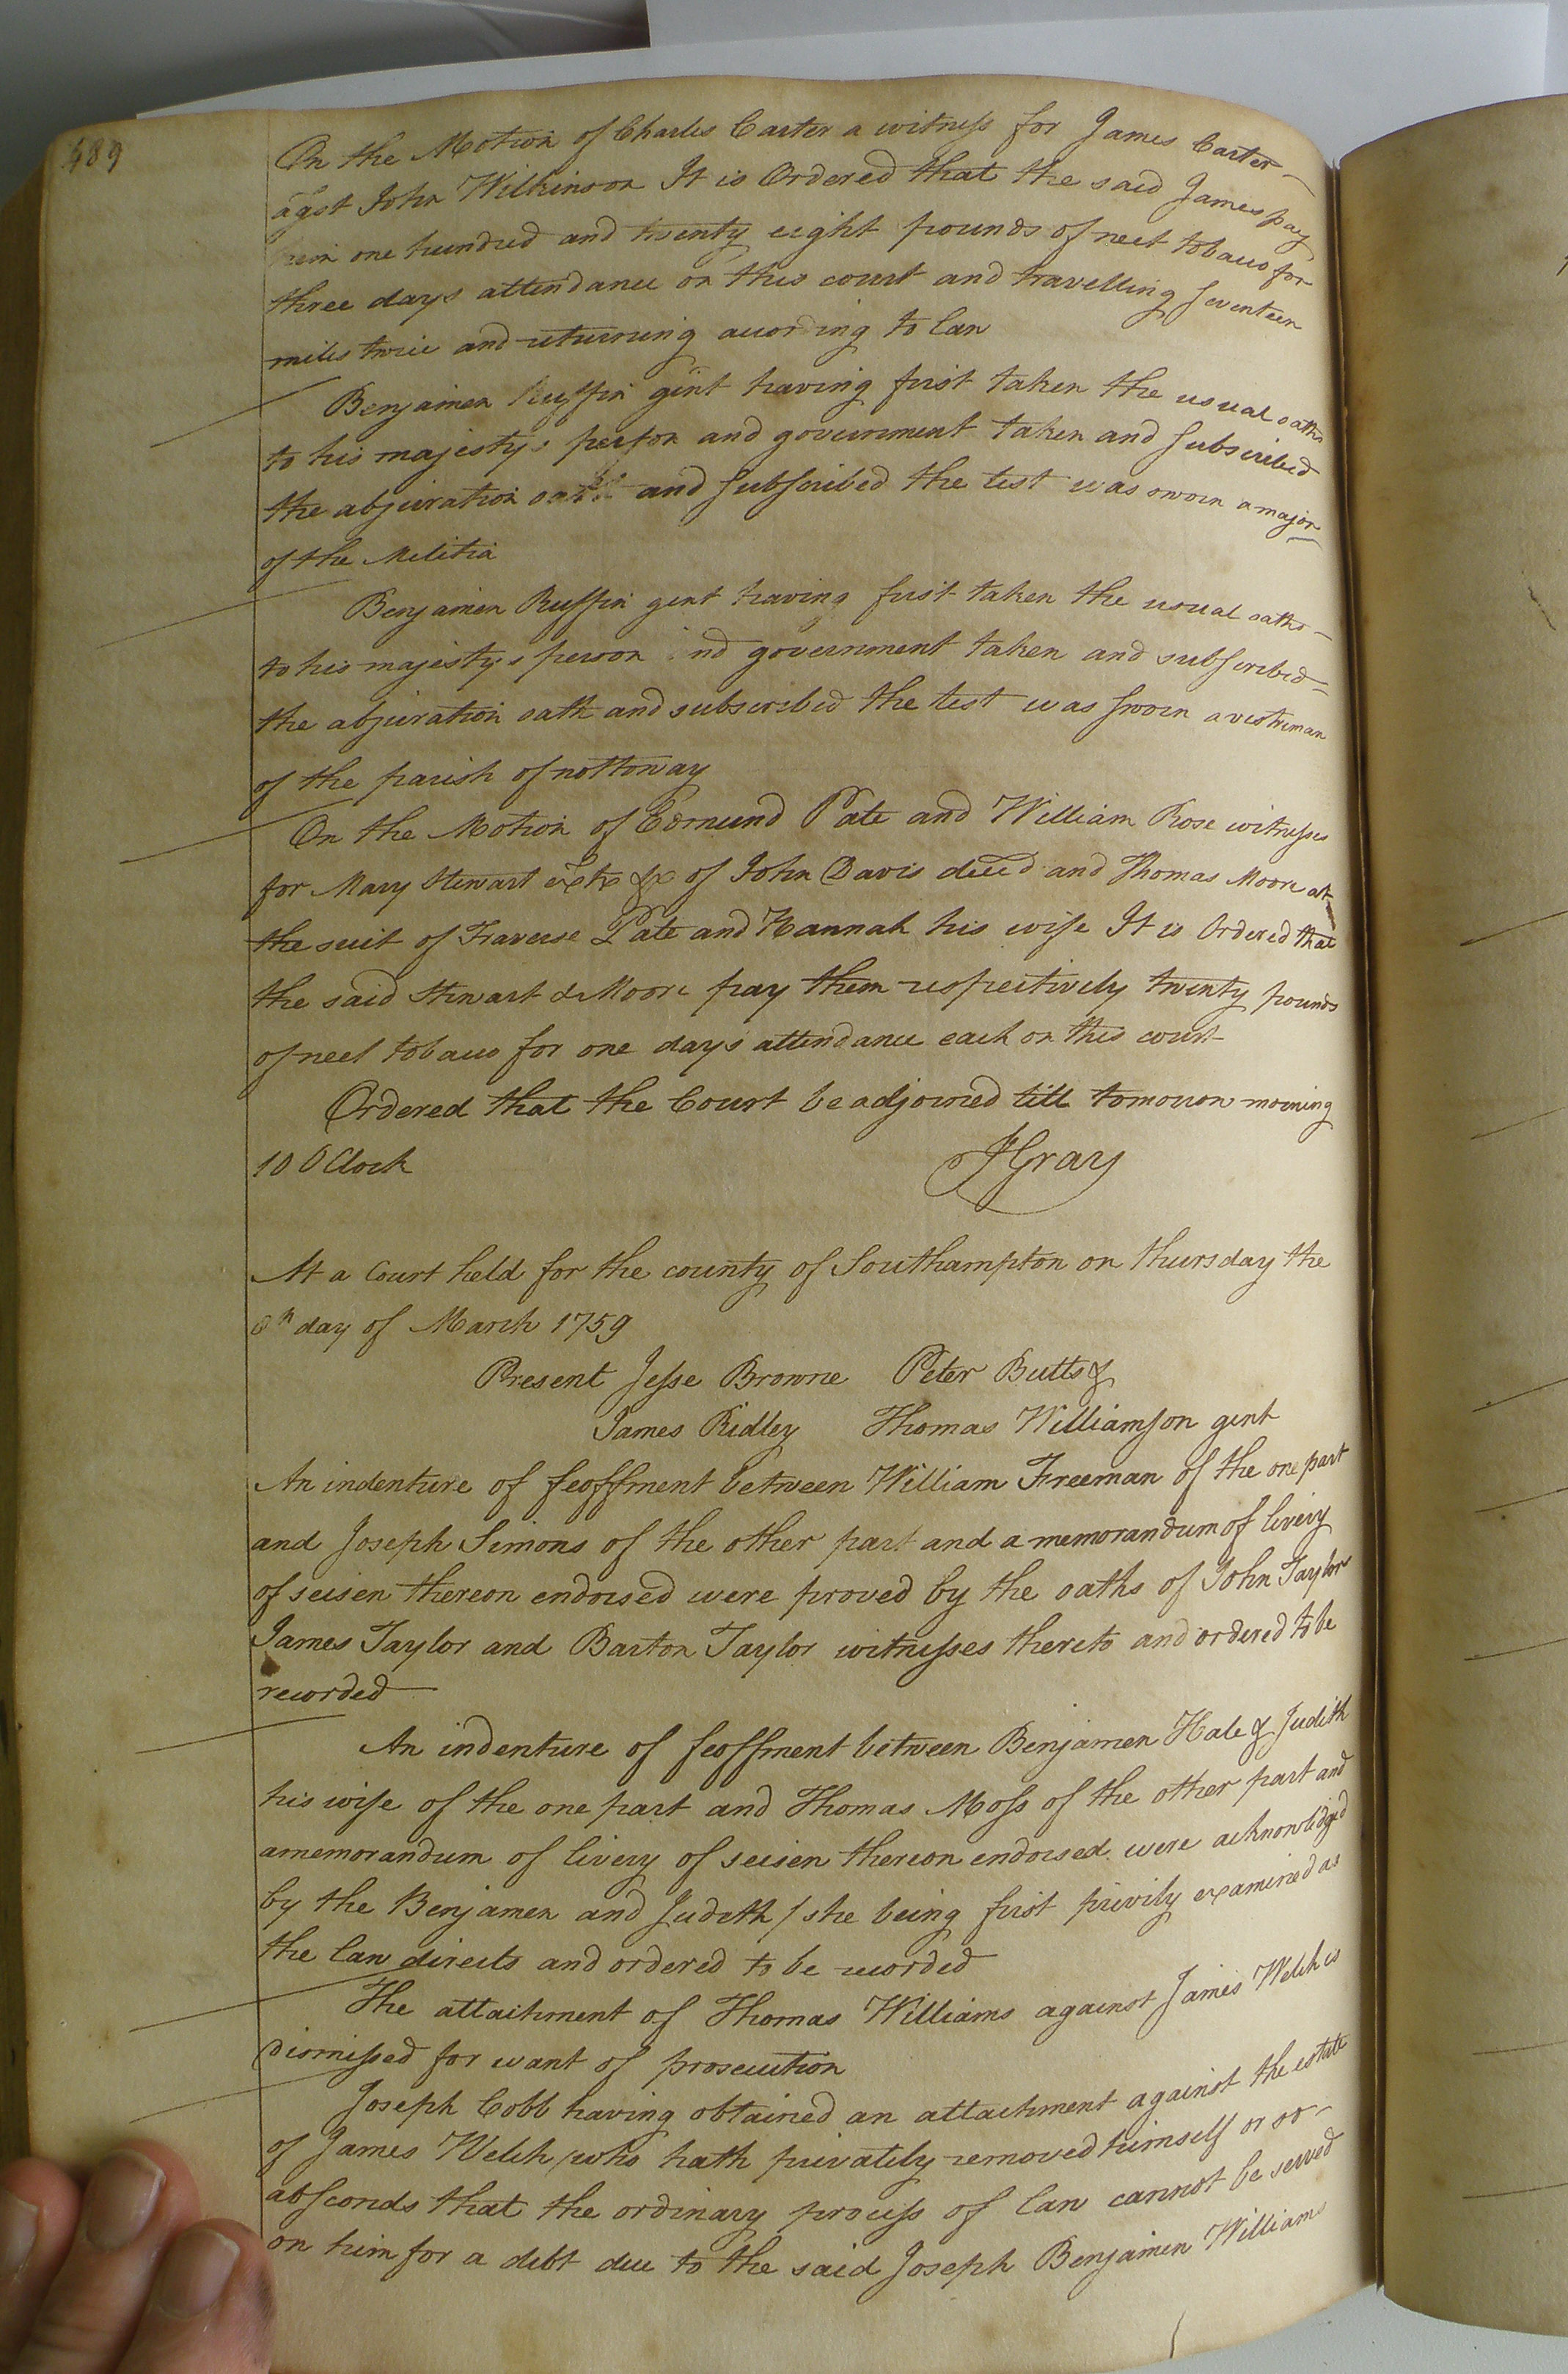 489
On the Motion of Charles Carter a witness for James Carter
agst John Wilkinson It is Ordered that the said James pay
him one hundred and twenty eight pounds of neet tobacco for
three days attendance on this court and travelling seventeen
miles twice and returning according to law
Benjamen Ruffin gent having first taken the usual oaths
to his majestys person and government taken and subscribed
the abjuration oath and subscribed the test was sworn a major
of the Militia
Benjamen Ruffin gent having first taken the usual oaths
to his majestys person and government taken and subscribed
the abjuration oath and subscribed the test was sworn a vestriman
of the parish of nottoway
On the Motion of Edmund Pate and William Rose witnesses
for Mary Stewart extx &c of John Davis decd and Thomas Moore at
the suit of Traverse Pate and Hannah his wife It is Ordered that
the said Stewart & Moore pay them respectively twenty pounds
of neet tobacco for one days attendance each on this court
Ordered that the Court be adjorned till tomorrow morning
10 OClock JGray
At a Court held for the county of Southampton on thursday the
day of March 1759
Present Jesse Browne Peter Butts &
James Ridley Thomas Williamson gent
An indenture of feoffment between William Freeman of the one part
and Joseph Simons of the other part and a memorandum of livery
of seisen thereon endorsed were proved by the oaths of John Taylor
James Taylor and Barton Taylor witnesses thereto and ordered to be
recorded
An indenture of feoffment between Benjamen Hale & Judith
his wife of the one part and Thomas Moss of the other part and
a memorandum of livery of seisen thereon endorsed were acknowledged
by the Benjamen and Judeth / she being first privily examined as
the law directs and ordered to be recorded
The attachment of Thomas Williams against James Welch is
dismissed for want of prosecution
Joseph Cobb having obtained an attachment against the estate
of James Welch who hath privately removed himself or so
absconds that the ordinary process of law cannot be served
on him for a debt due to the said Joseph Benjamen Williams